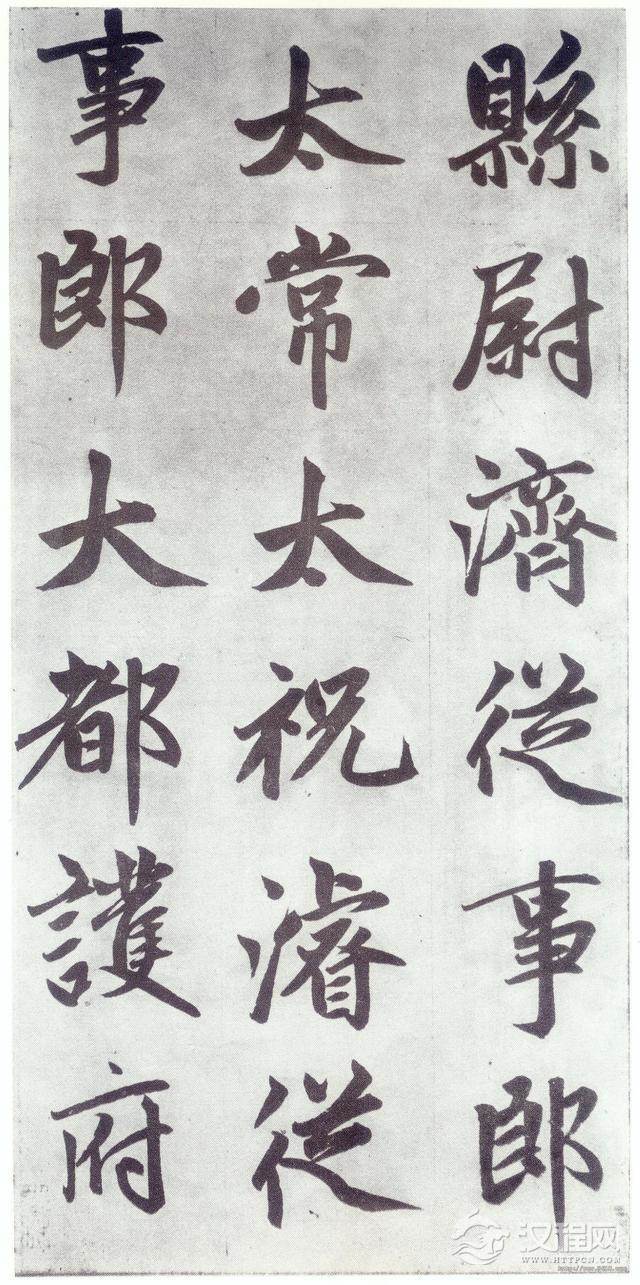 縣尉濟從事郎
太常太祝濬從
事郎大都護府
汉程网
WWW.HTTPCN.COM